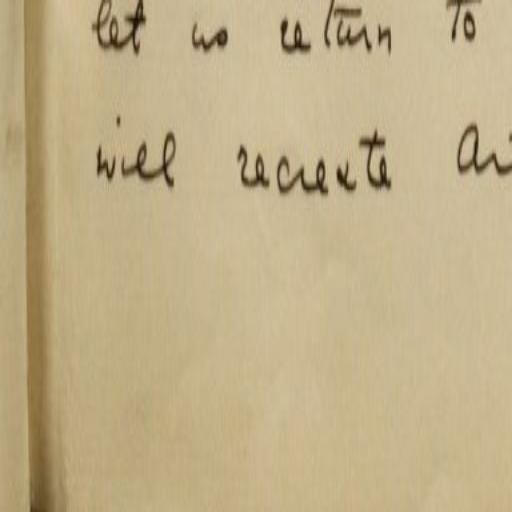 let us return to
will recreate